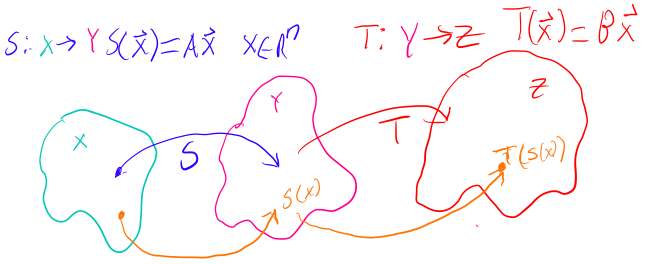 S: X → Y S(x⃗) = Ax⃗ x ∈ ℝⁿ T: Y → Z T(x⃗) = Bx⃗
X Y Z
S T
S(x) T(S(x))